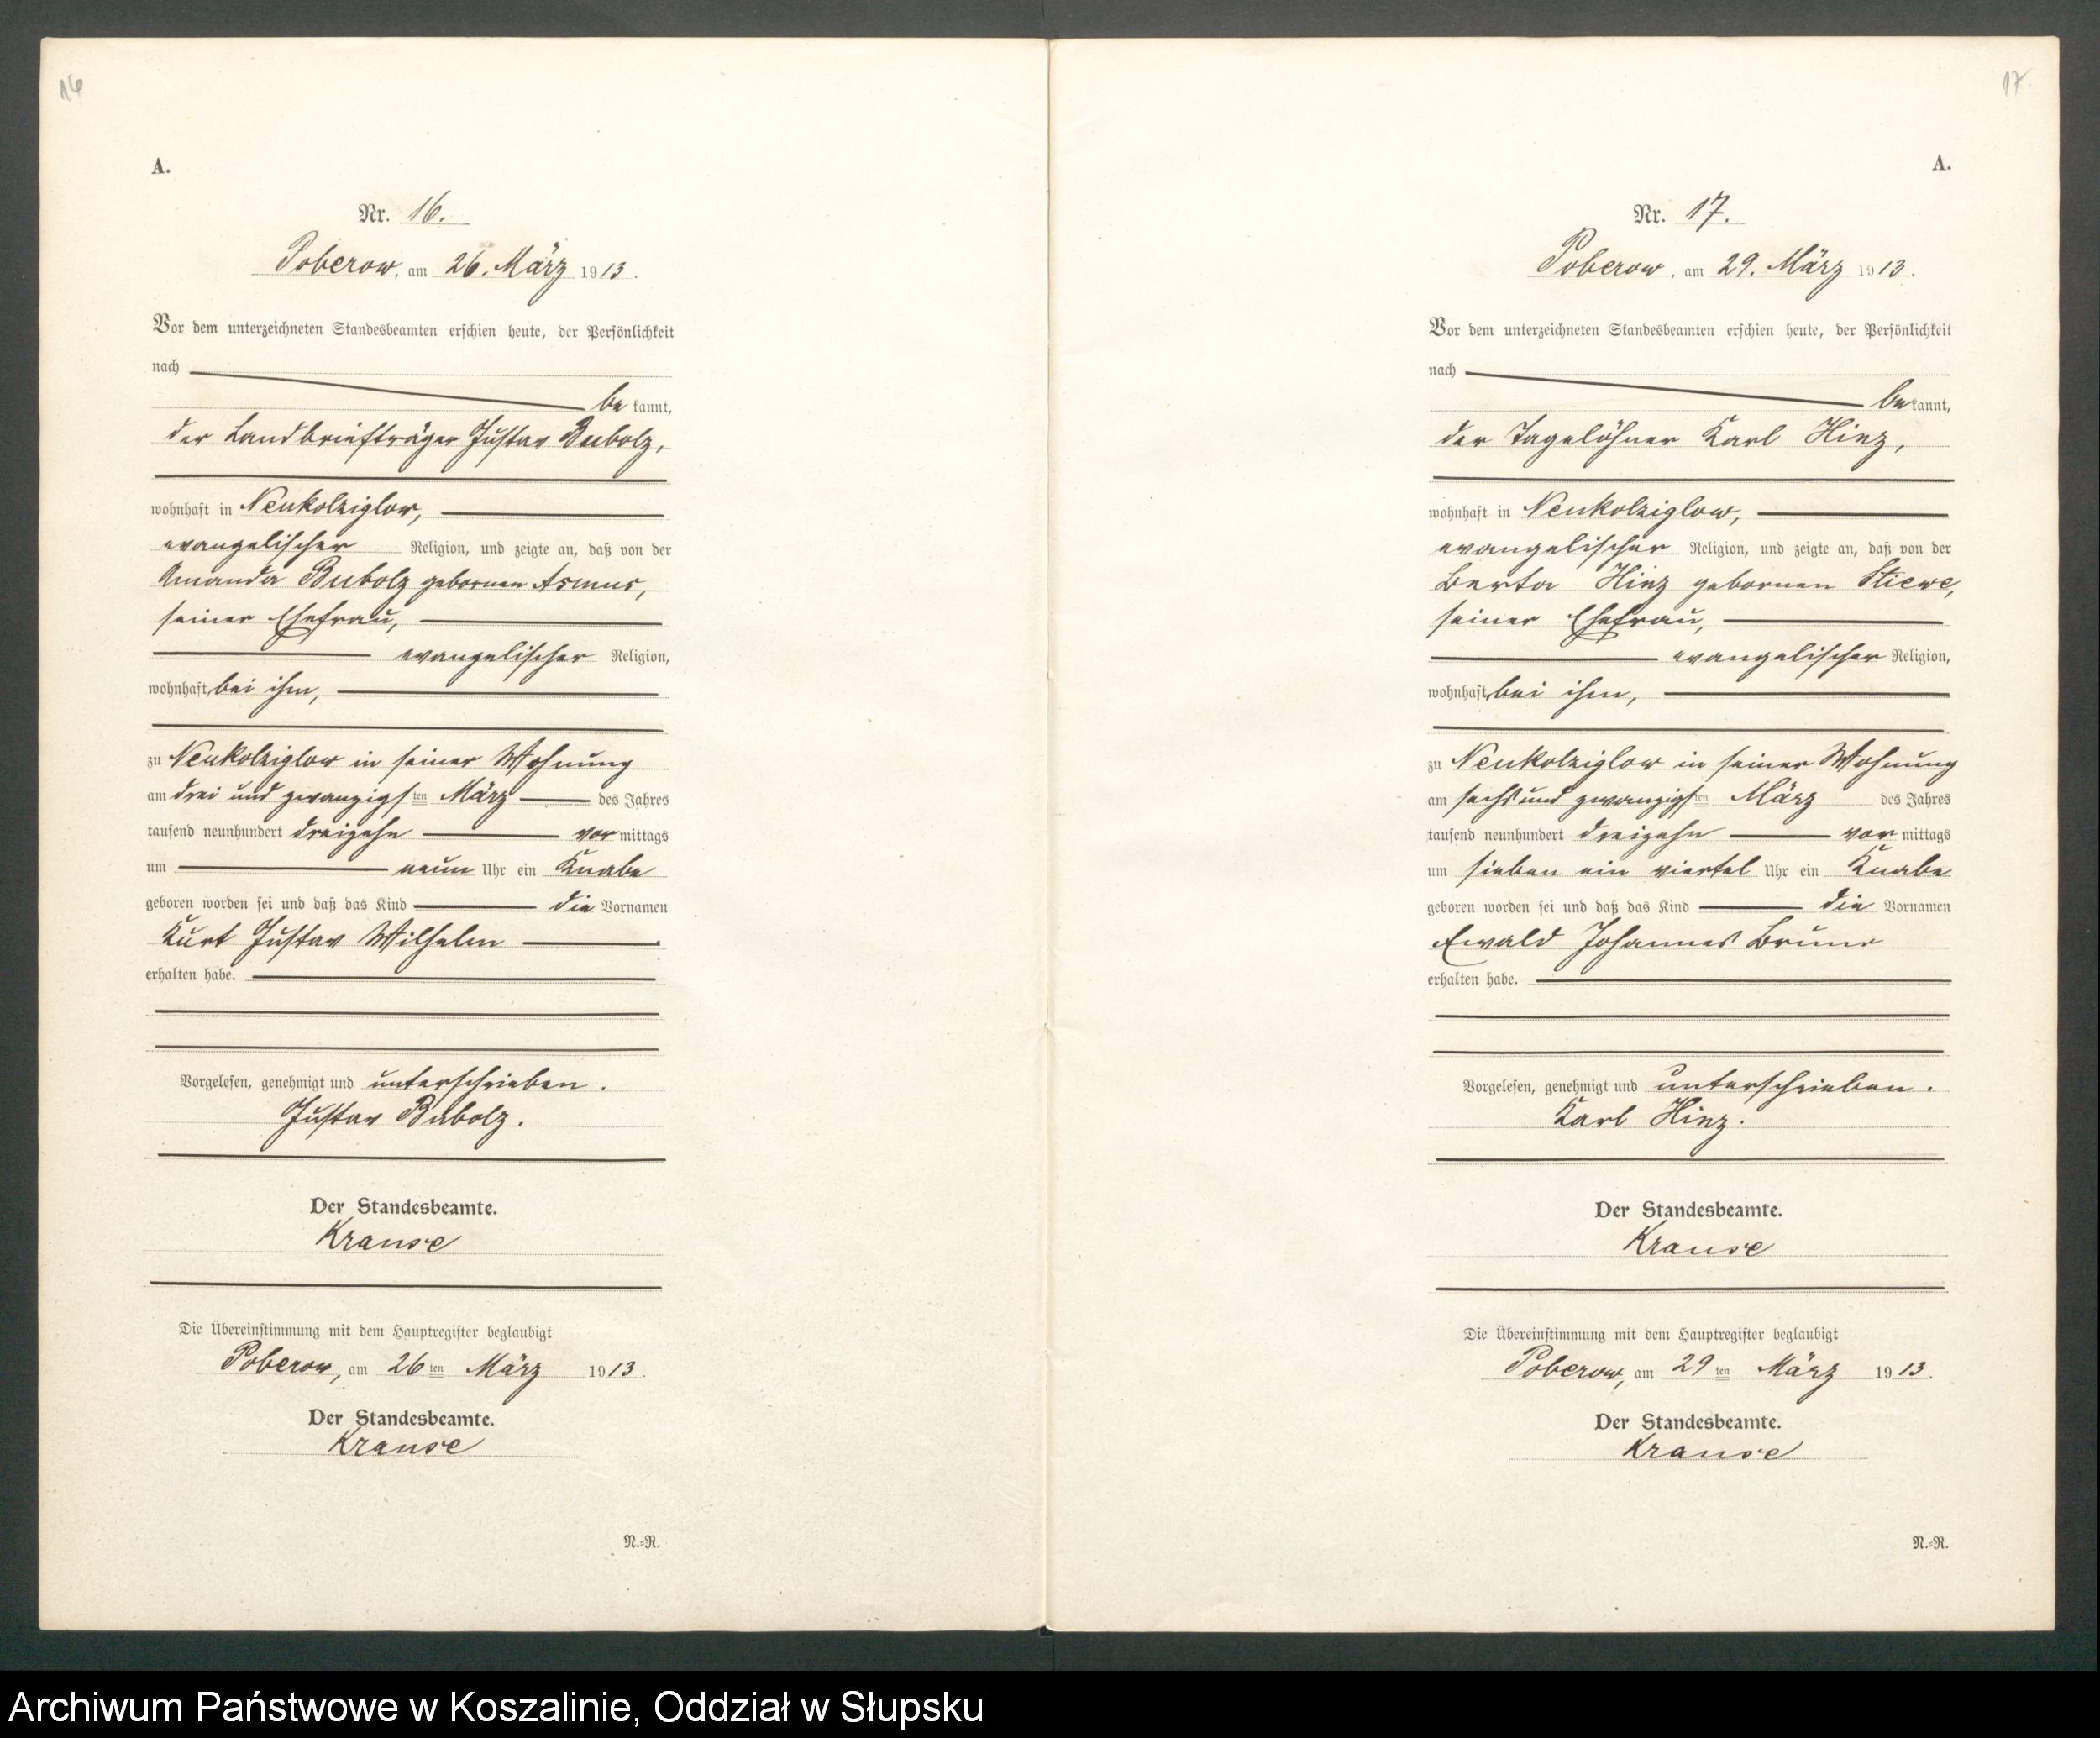 16
A.
Nr. 16.
Poberow, am 26. März 1913.
Vor dem unterzeichneten Standesbeamten erschien heute, der Persönlichkeit
nach
be kannt,
der Landbriefträger Gustav Bubolz,
wohnhaft in Neukolziglow,
evangelischer Religion, und zeigte an, daß von der
Amanda Bubolz gebornen Asmus,
seiner Ehefrau,
evangelischer Religion,
wohnhaft, bei ihm,
zu Neukolziglow in seiner Wohnung
am drei und zwanzigsten März des Jahres
tausend neunhundert dreizehn vor mittags
um neun Uhr ein Knabe
geboren worden sei und daß das Kind die Vornamen
Kurt Gustav Wilhelm
erhalten habe.
Vorgelesen, genehmigt und unterschrieben.
Gustav Bubolz.
Der Standesbeamte.
Krause
Die Übereinstimmung mit dem Hauptregister beglaubigt
Poberow, am 26 ten März 1913.
Der Standesbeamte.
Krause
N.-R.
17
A.
Nr. 17.
Poberow, am 29. März 1913.
Vor dem unterzeichneten Standesbeamten erschien heute, der Persönlichkeit
nach
be kannt,
der Tagelöhner Karl Hinz,
wohnhaft in Neukolziglow,
evangelischer Religion, und zeigte an, daß von der
Berta Hinz gebornen Stiewe,
seiner Ehefrau,
evangelischer Religion,
wohnhaft, bei ihm,
zu Neukolziglow in seiner Wohnung
am sechs und zwanzigsten März des Jahres
tausend neunhundert dreizehn vor mittags
um sieben ein viertel Uhr ein Knabe
geboren worden sei und daß das Kind die Vornamen
Ewald Johannes Bruno
erhalten habe.
Vorgelesen, genehmigt und unterschrieben.
Karl Hinz.
Der Standesbeamte.
Krause
Die Übereinstimmung mit dem Hauptregister beglaubigt
Poberow, am 29 ten März 1913.
Der Standesbeamte.
Krause
N.-R.
Archiwum Państwowe w Koszalinie, Oddział w Słupsku